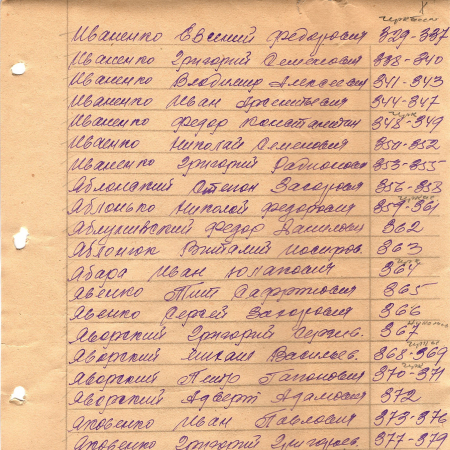 Иваненко Евгений Федорович 329-337
Иваненко Григорий Семенович 338-340
Иваненко Владимир Алексеевич 341-343
Иваненко Иван 344-347
Иваненко Федор Константин 348-349
Иваненко Николай Семенович 350-352
Иваненко Григорий Родионович 353-355
Яблонский Степан Захарович 356-358
Яблонько Николай Федорович 359-361
Федор Данилович 362
Яблонюк Виталий Иосифов. 363
Ябара Иван 364
Явенко Тит 365
Явенко Сергей Захарович 366
Яворский Григорий Сергеев. 367
Яворский Михаил Васильев. 368-369
Яворский Петр 370-371
Яворский Адвент Адамович 372
Яковенко Иван Павлович 373-376
Яковенко Григорий Григорьев. 377-379